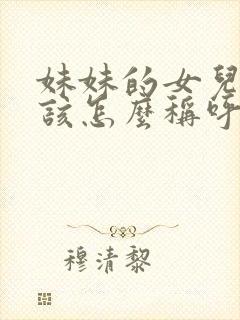 妹妹的女兒
該怎麼稱呼
穆清黎